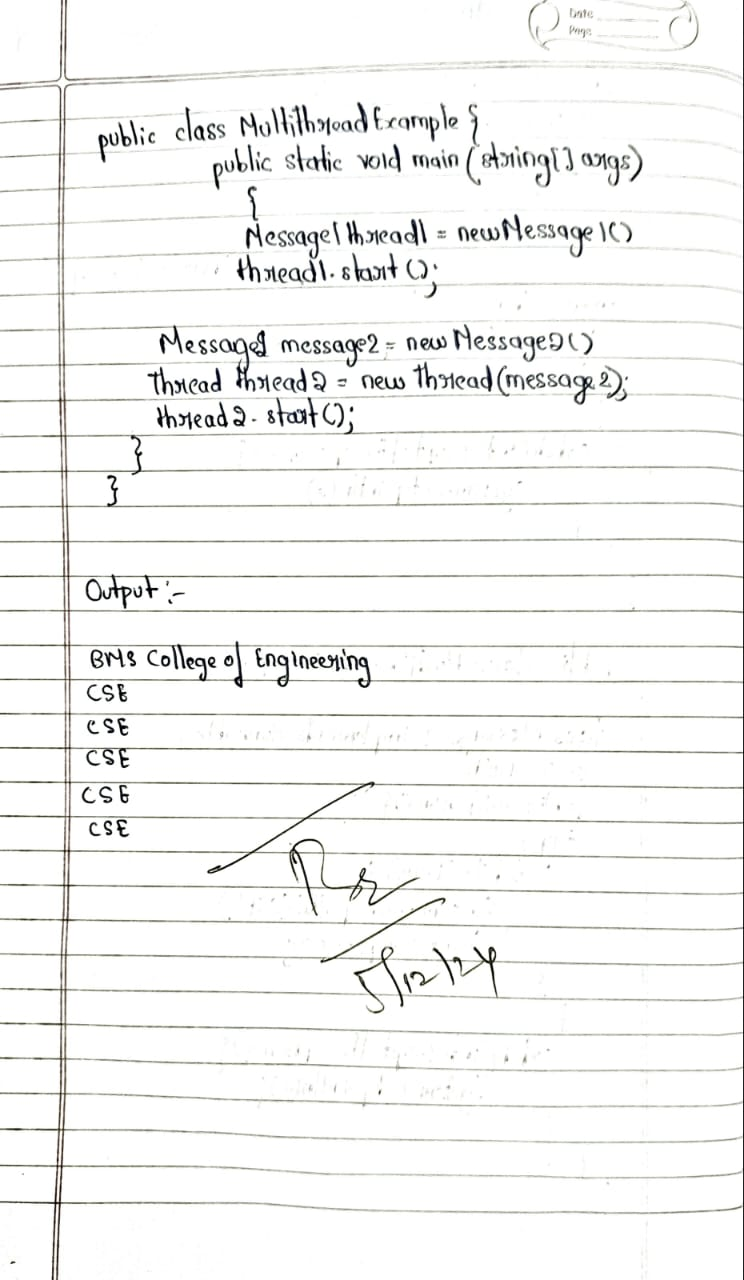 Date
Page
public class MultithreadExample {
public static void main (string[] args)
{
Message1 thread1 = new Message1()
thread1.start();
Message2 message2 = new Message2()
Thread thread2 = new Thread(message2);
thread2.start();
}
}
Output :-
BMS College of Engineering
CSE
CSE
CSE
CSE
CSE
5/12/24